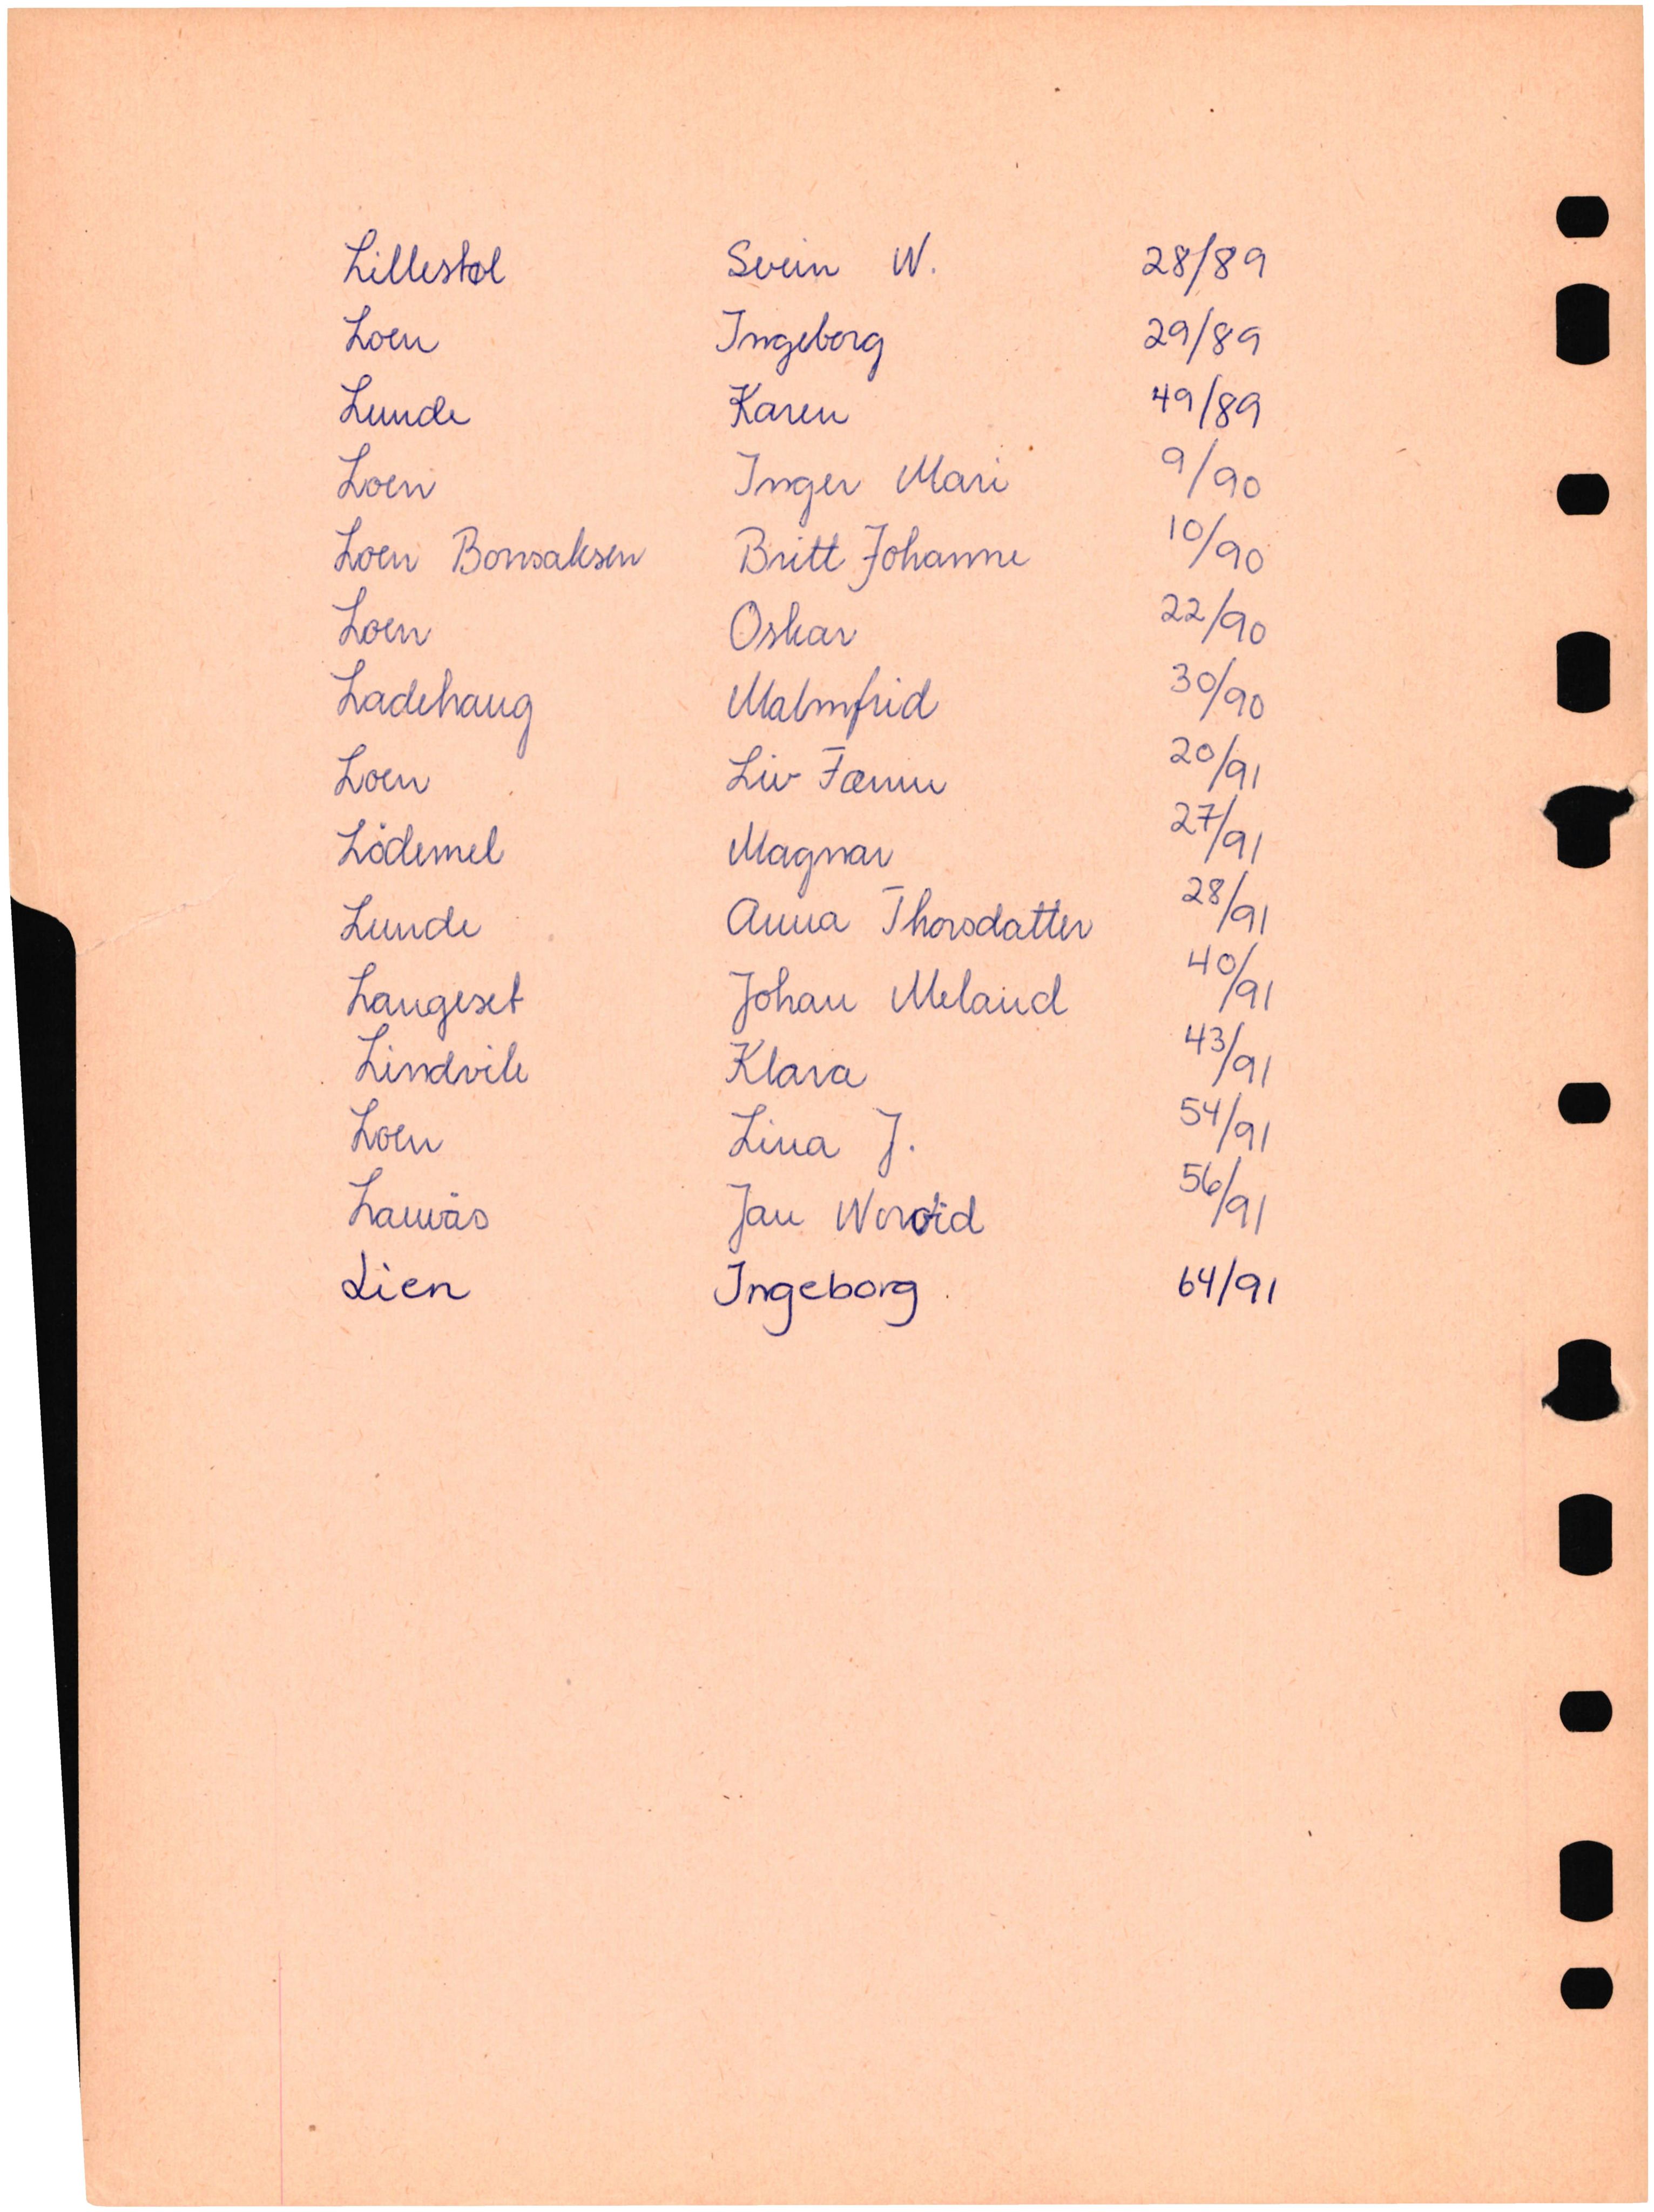 Lillestøl Svein W. 28/89
Loen Ingeborg 29/89
Lunde Karen 49/89
Loen Inger Mari 9/90
Loen Bonsaksen Britt Johanne 10/90
Loen Oskar 22/90
Ladehaug Malmfrid 30/90
Loen Liv 20/91
Lödemel Magnar 27/91
Lunde Anna Thorsdatter 28/91
Langeset Johan Meland 40/91
Lindvik Klara 43/91
Loen Lina J. 54/91
Jan 56/91
Lien Ingeborg 64/91